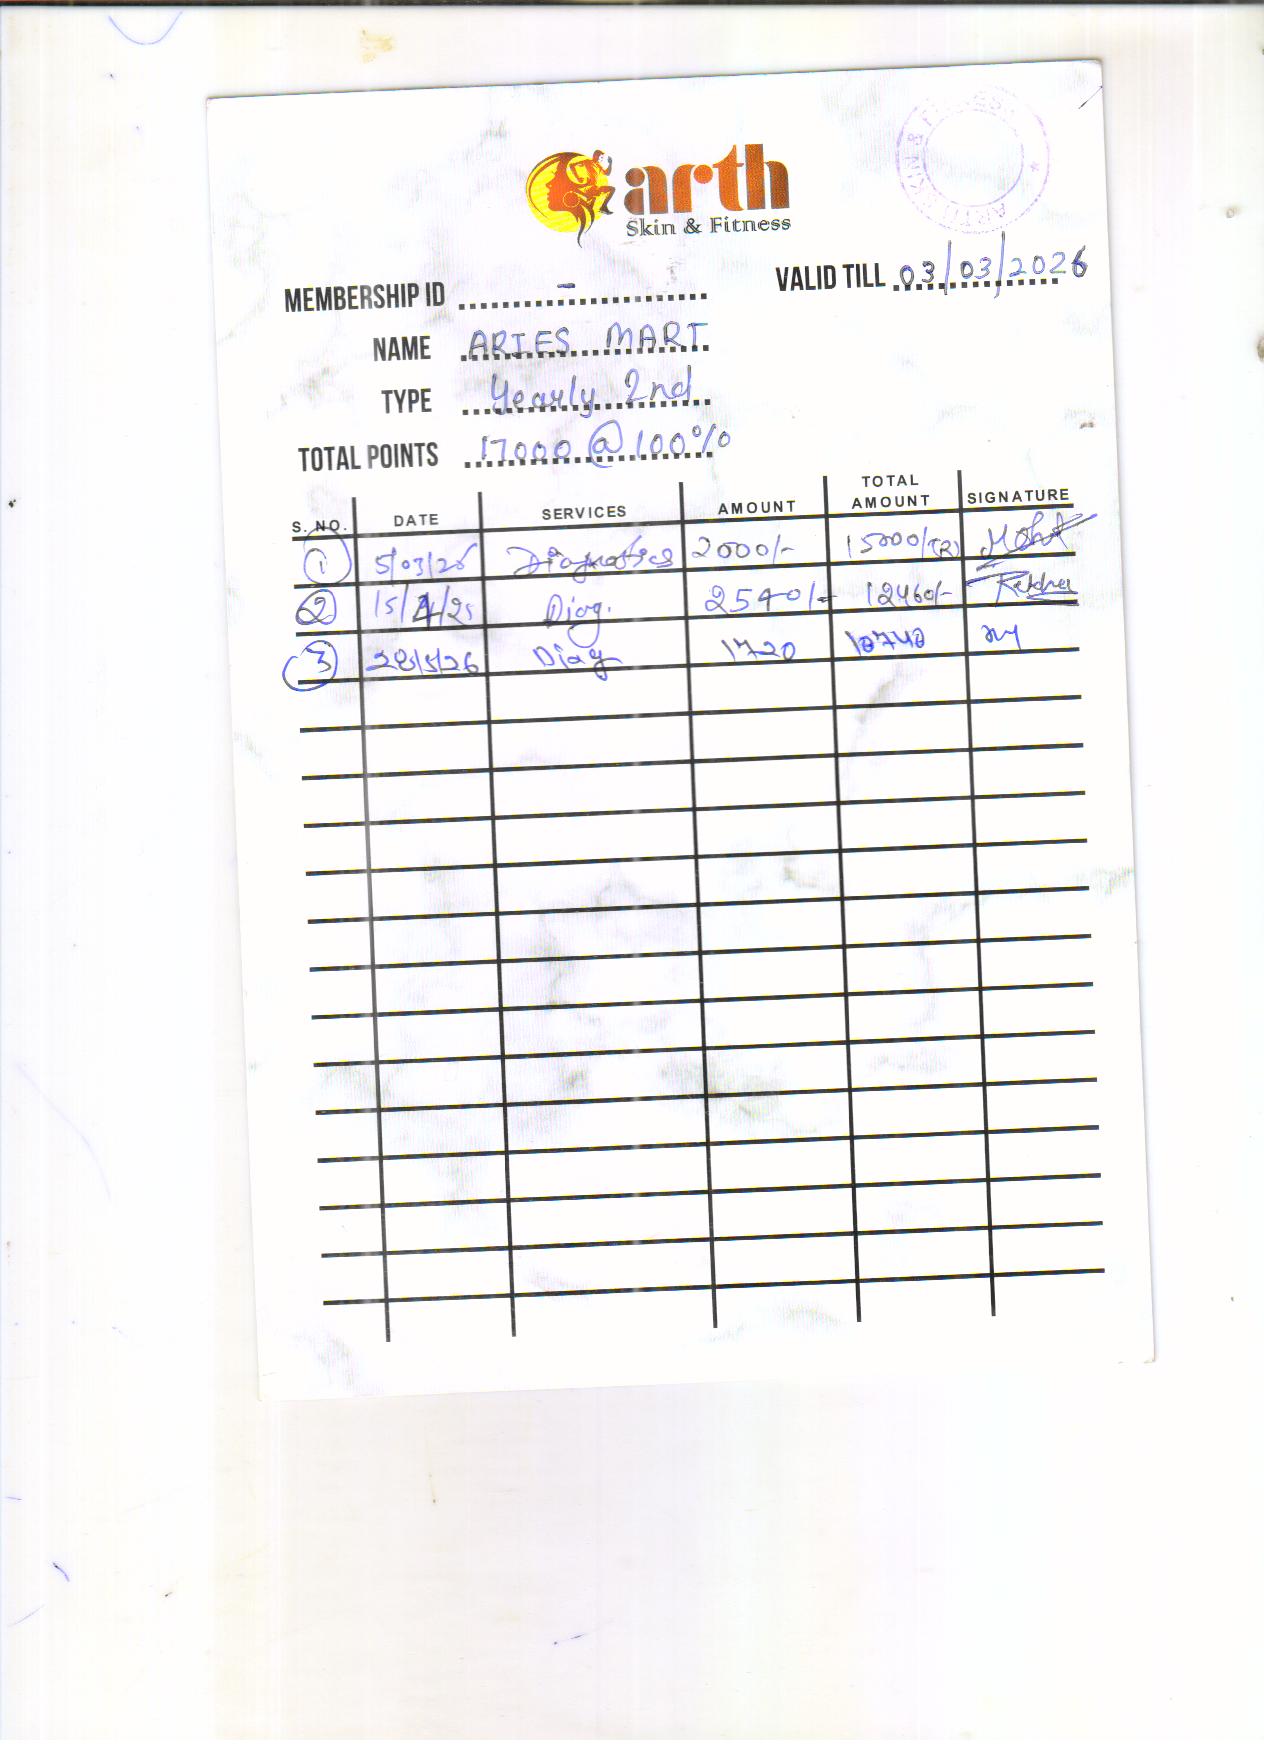 ARTH SKIN & FITNESS *
arth
Skin & Fitness
VALID TILL 03/03/2026
MEMBERSHIP ID -
NAME ARIES MART
TYPE Yearly 2nd
TOTAL POINTS 17000 @ 100%
S. NO. DATE SERVICES AMOUNT TOTAL AMOUNT SIGNATURE
1 5/03/25 Diagnostics 2000/- 15000/-(R) Mohit
2 15/4/25 Diag. 2540/- 12460/- Rekha
3 28/5/26 Diag 1720 10740